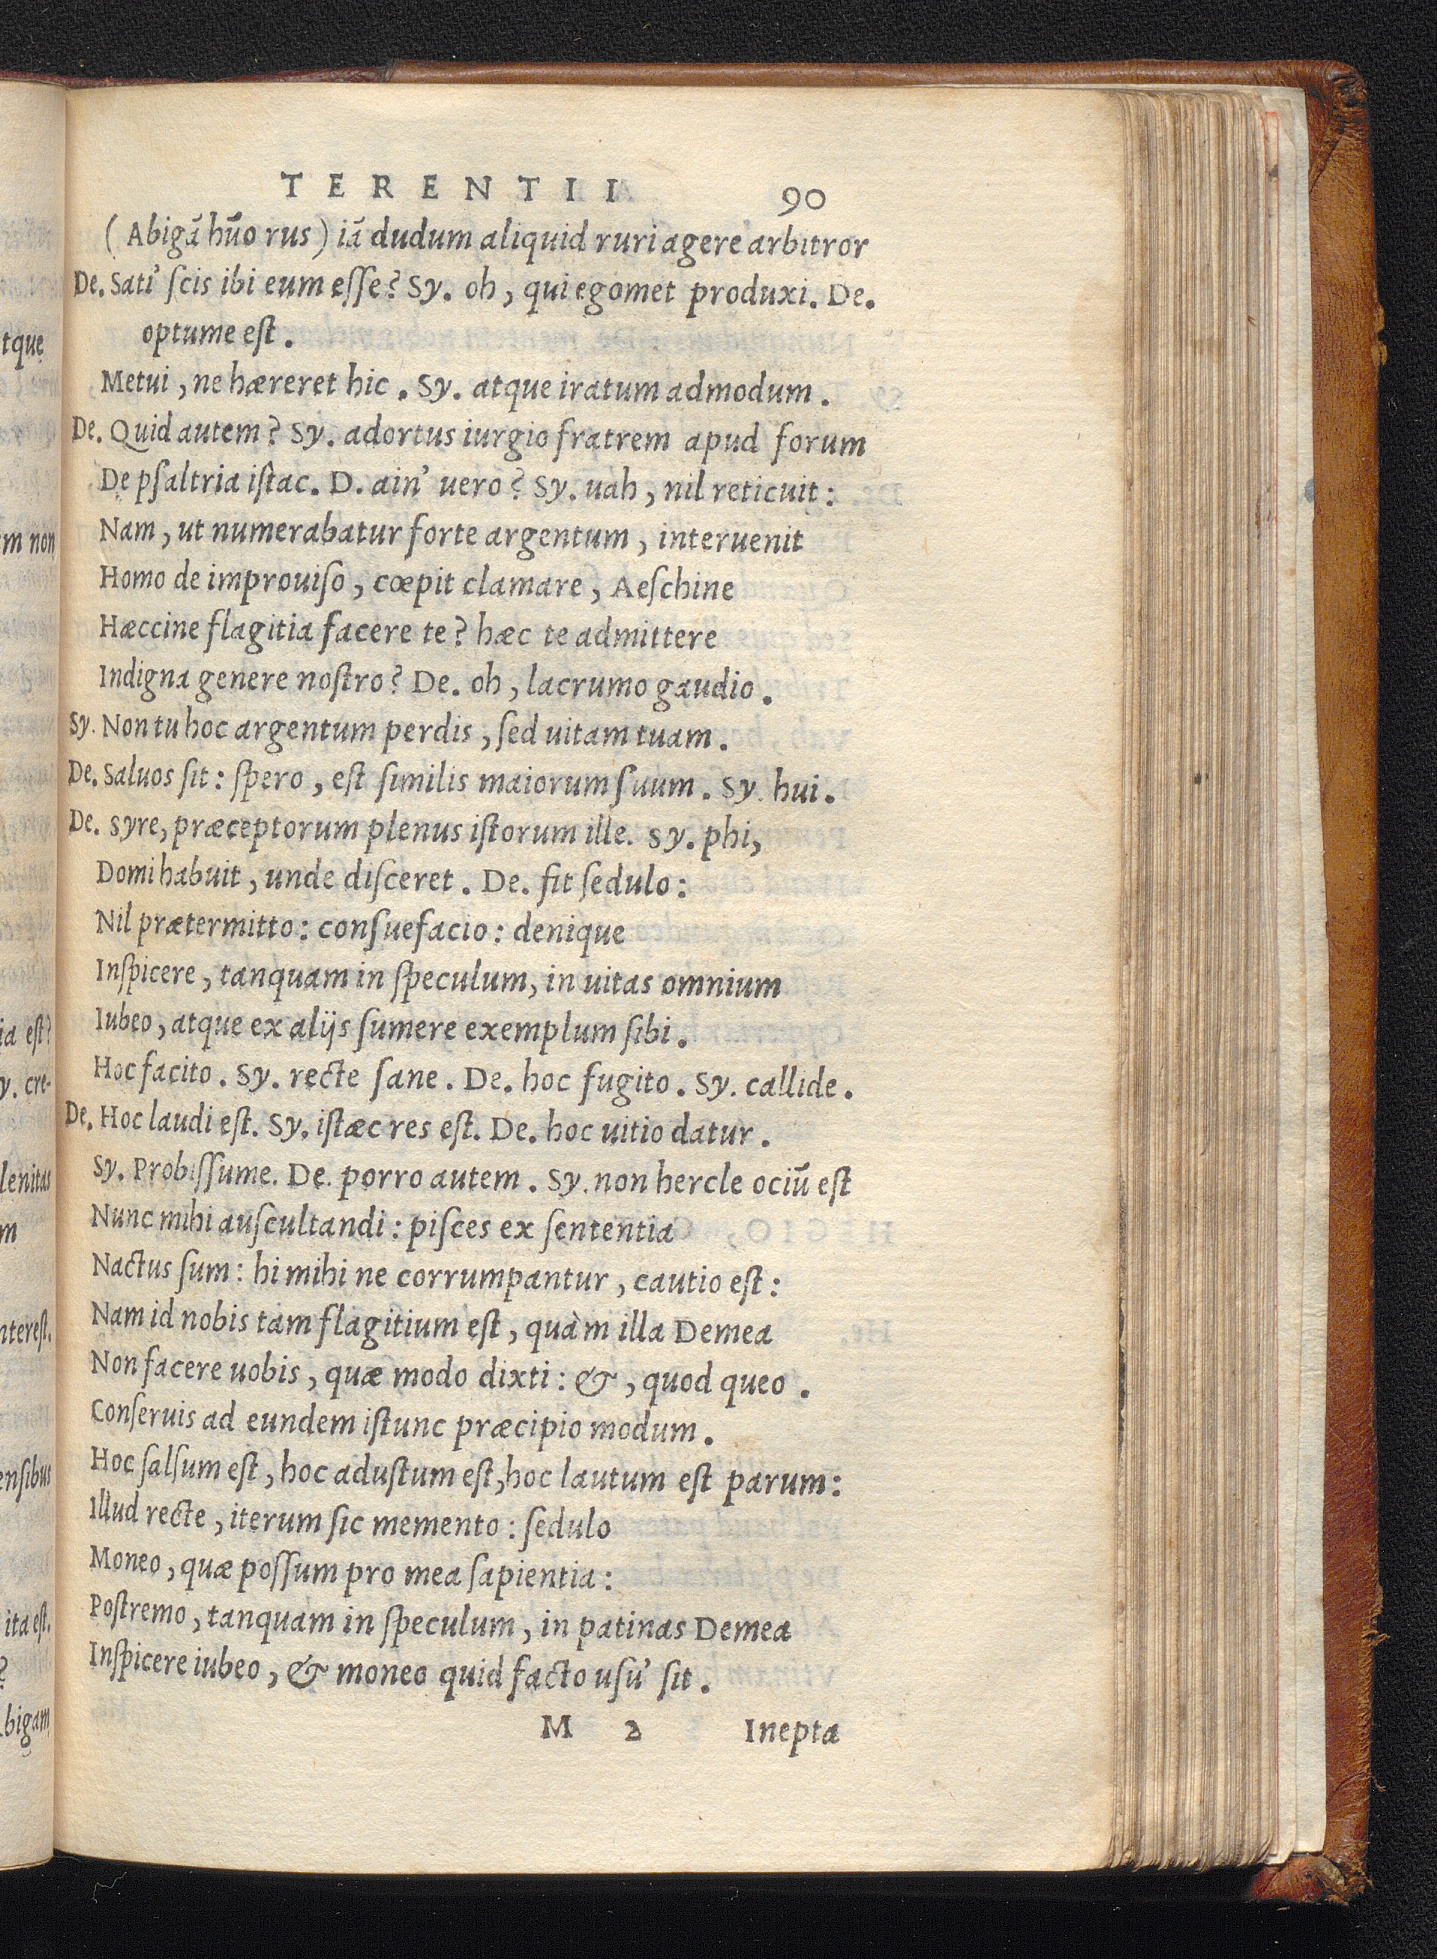 TERENTII 90
( Abigã hũo rus ) iã dudum aliquid ruri agere arbitror
De. Sati' ſcis ibi eum eſſe? Sy. oh, qui egomet produxi. De.
optume eſt.
Metui, ne hæreret hic. Sy. atque iratum admodum.
De. Quid autem? Sy. adortus iurgio fratrem apud forum
De pſaltria iſtac. D. ain' uero? Sy. uah, nil reticuit:
Nam, ut numerabatur forte argentum, interuenit
Homo de improuiſo, cœpit clamare, Aeſchine
Hæccine flagitia facere te? hæc te admittere
Indigna genere noſtro? De. oh, lacrumo gaudio.
Sy. Non tu hoc argentum perdis, ſed uitam tuam.
De. Saluos ſit: ſpero, eſt ſimilis maiorum ſuum. Sy. hui.
De. Syre, præceptorum plenus iſtorum ille. Sy. phi,
Domi habuit, unde diſceret. De. fit ſedulo:
Nil prætermitto: conſuefacio: denique
Inſpicere, tanquam in ſpeculum, in uitas omnium
Iubeo, atque ex alijs ſumere exemplum ſibi.
Hoc facito. Sy. recte ſane. De. hoc fugito. Sy. callide.
De. Hoc laudi eſt. Sy. iſtæc res eſt. De. hoc uitio datur.
Sy. Probiſſume. De. porro autem. Sy. non hercle ociũ eſt
Nunc mihi auſcultandi: piſces ex ſententia
Nactus ſum: hi mihi ne corrumpantur, cautio eſt:
Nam id nobis tam flagitium eſt, quàm illa Demea
Non facere uobis, quæ modo dixti: &, quod queo.
Conſeruis ad eundem iſtunc præcipio modum.
Hoc ſalſum eſt, hoc aduſtum eſt, hoc lautum eſt parum:
Illud recte, iterum ſic memento: ſedulo
Moneo, quæ poſſum pro mea ſapientia:
Poſtremo, tanquam in ſpeculum, in patinas Demea
Inſpicere iubeo, & moneo quid facto uſu' ſit.
M 2 Inepta